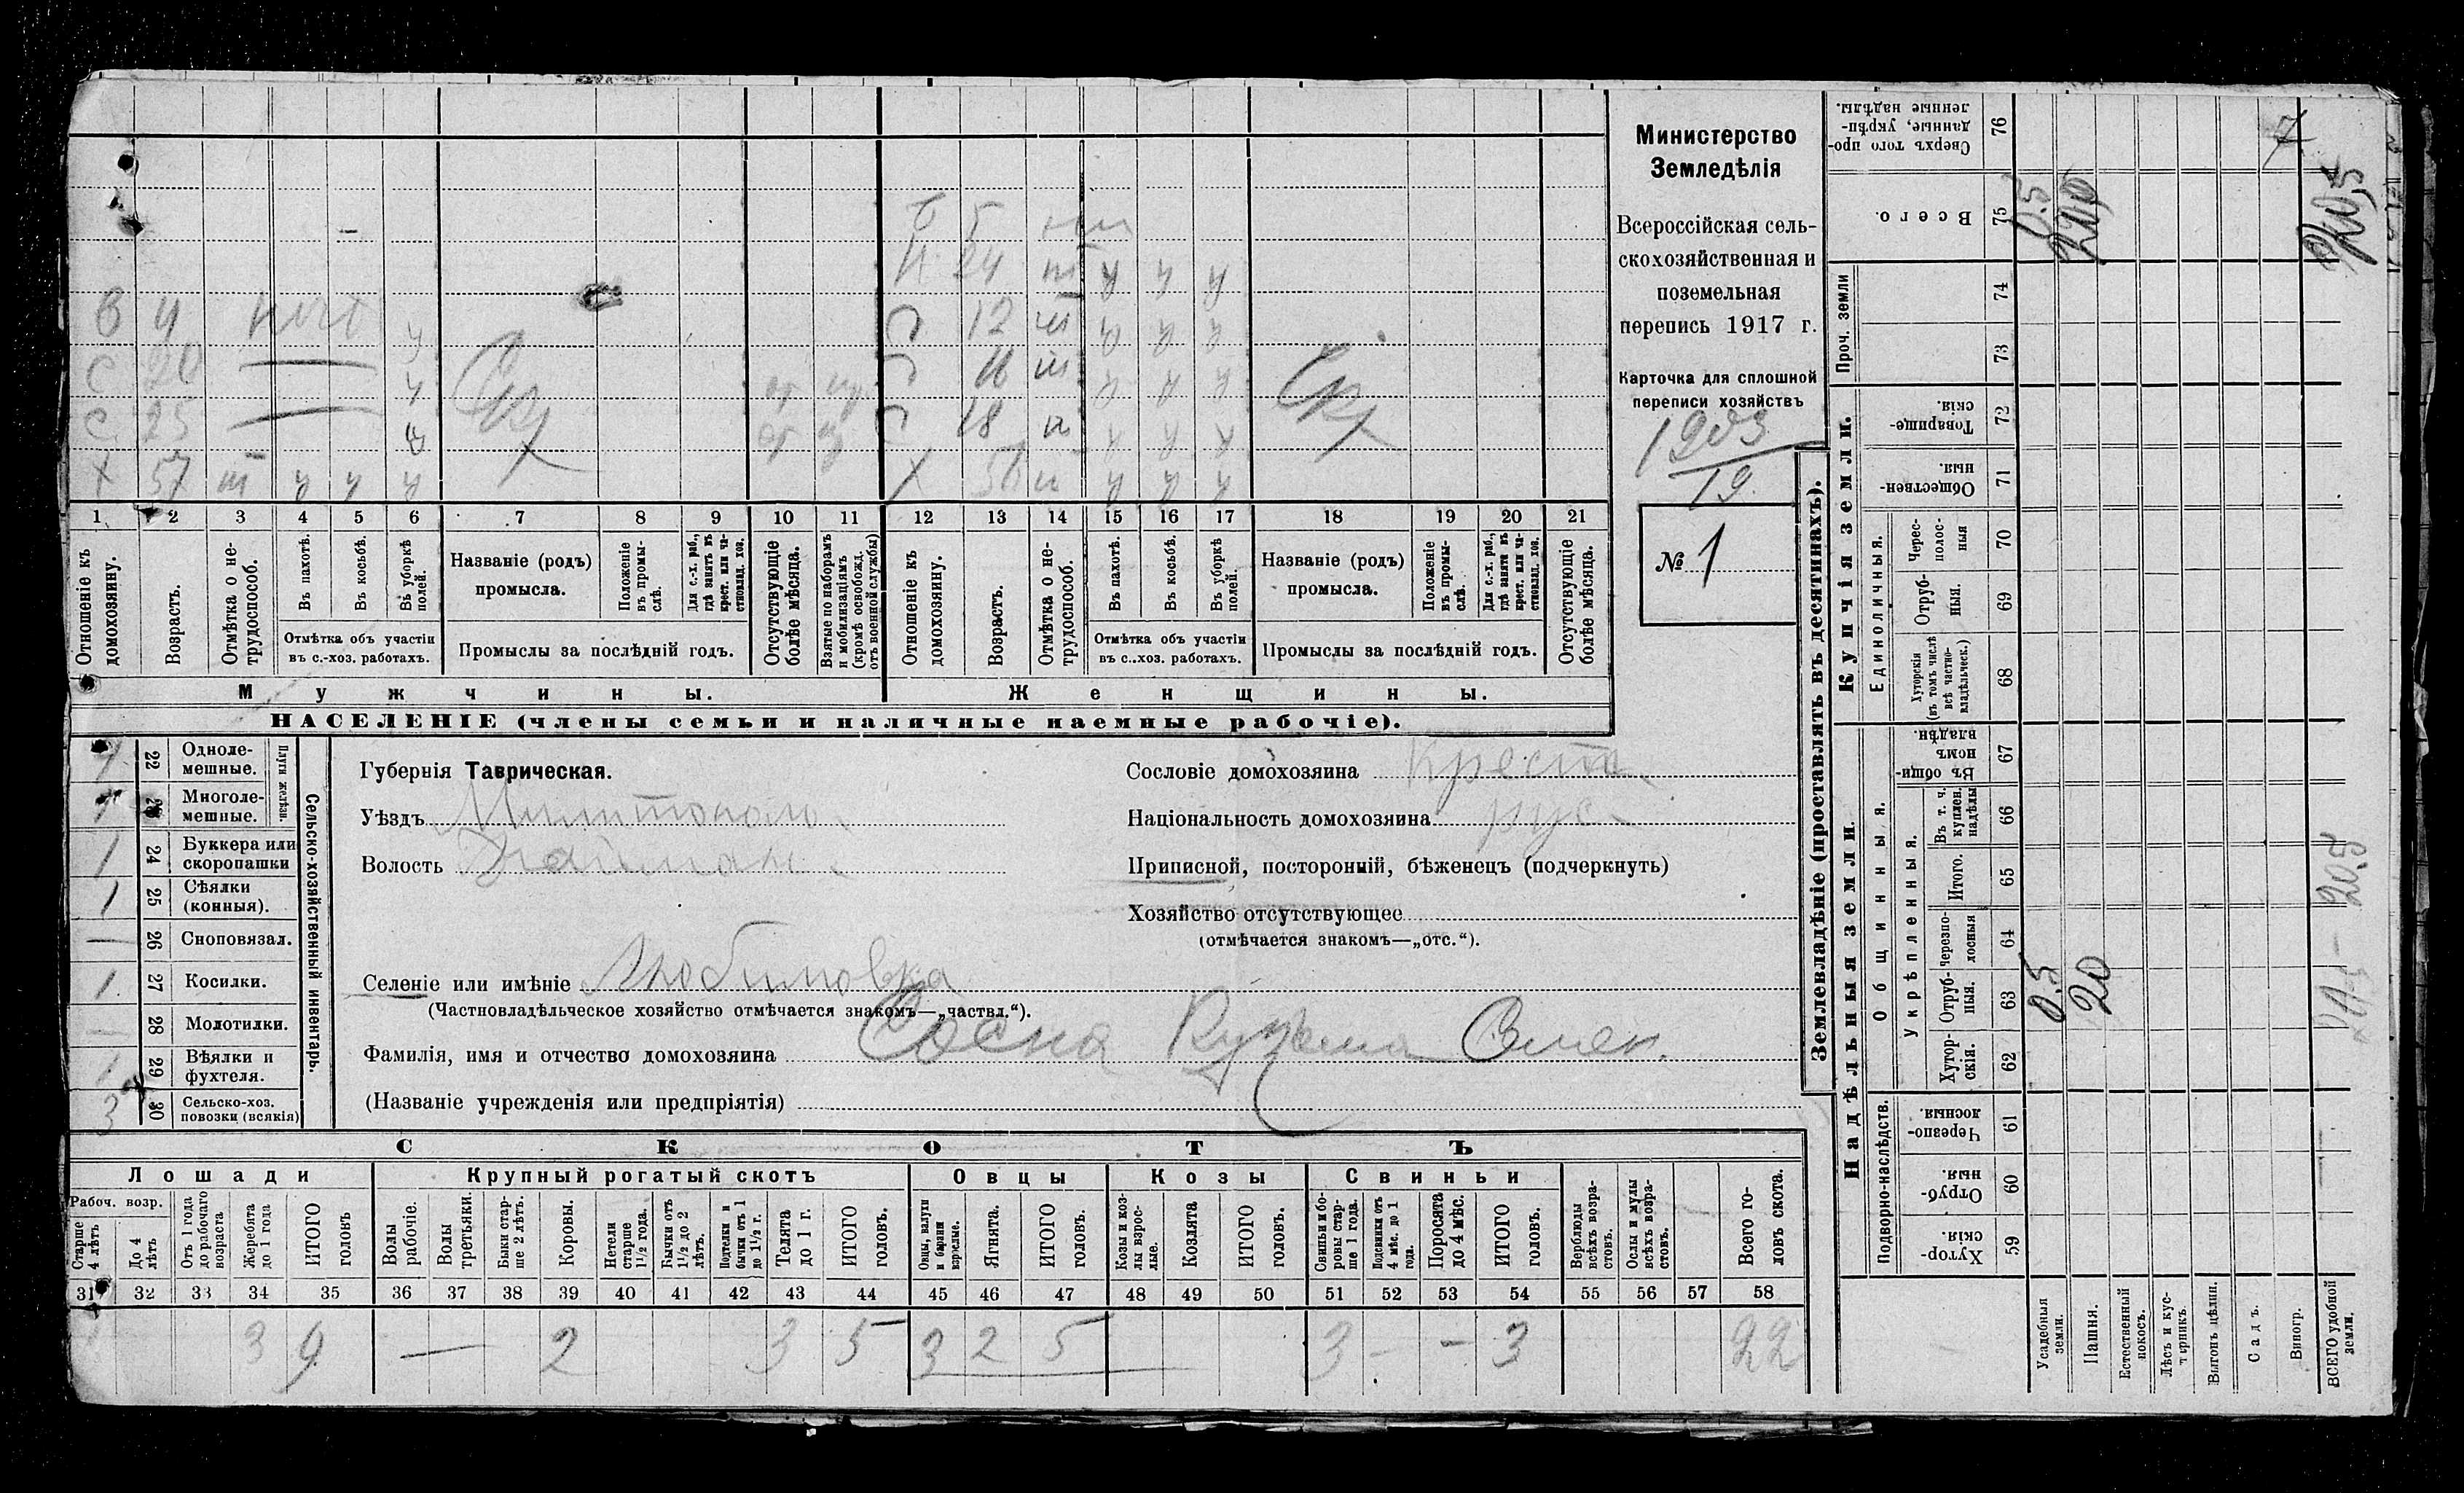 Министерство
Земледѣлія
Всероссійская сель-
скохозяйственная и
поземельная
перепись 1917 г.
Карточка для сплошной
переписи хозяйствъ
1903
19.
№ 1
5
24 т у у у
В 4 12
С 20 16
С 25 18
Х 57 т у у у Х
1 2 3 4 5 6 7 8 9 10 11 12 13 14 15 16 17 18 19 20 21
Отношеніе къ домохозяину.
Возрастъ.
Отмѣтка о не-трудоспособ.
Въ пахотѣ.
Въ косьбѣ.
Въ уборкѣ полей.
Отмѣтка объ участіи
въ с.-хоз. работахъ.
Названіе (родъ)
промысла.
Положеніе въ промы-слѣ.
Для с.-х. раб., гдѣ занятъ въ крест. или ча-стновлад. хоз.
Промыслы за послѣдній годъ.
Отсутствующіе болѣе мѣсяца.
Взятые по наборамъ и мобилизаціямъ (кромѣ освобожд. отъ военной службы)
Отношеніе къ домохозяину.
Возрастъ.
Отмѣтка о не-трудоспособ.
Въ пахотѣ.
Въ косьбѣ.
Въ уборкѣ полей.
Отмѣтка объ участіи
въ с..хоз. работахъ.
Названіе (родъ)
промысла.
Положеніе въ промы-слѣ.
Для с.-х. раб., гдѣ занята въ крест. или ча-стновлад. хоз.
Промыслы за послѣдній годъ.
Отсутствующіе болѣе мѣсяца.
Мужчины.
Женщины.
НАСЕЛЕНІЕ (члены семьи и наличные наемные рабочіе).
Сельско-хозяйственный инвентарь.
Плуги желѣзн.
22 Одноле-
мешные.
23 Многоле-
мешные.
1 24 Буккера или
скоропашки
1 25 Сѣялки
(конныя).
— 26 Сноповязал.
1 27 Косилки.
— 28 Молотилки.
1 29 Вѣялки и
фухтеля.
3 30 Сельско-хоз.
повозки (всякія)
Губернія Таврическая.
Уѣздъ
Волость
Сословіе домохозяина Крест.
Національность домохозяина рус.
Приписной, посторонній, бѣженецъ (подчеркнуть)
Хозяйство отсутствующее
(отмѣчается знакомъ—„отс.“).
Селеніе или имѣніе Любимовка
(Частновладѣльческое хозяйство отмѣчается знакомъ—„частвл.“).
Фамилія, имя и отчество домохозяина Сосна Кузьма Семен.
(Названіе учрежденія или предпріятія)
СКОТЪ
Лошади
Крупный рогатый скотъ
Овцы
Козы
Свиньи
Рабоч. возр.
Старше 4 лѣтъ
До 4 лѣтъ
Отъ 1 года до рабочаго возраста
Жеребята до 1 года
ИТОГО головъ
Волы рабочіе.
Волы третьяки.
Быки стар-ше 2 лѣтъ.
Коровы.
Нетели старше 1½ года.
Бычки отъ 1½ до 2 лѣтъ.
Подтелки и бычки отъ 1 до 1½ г.
Телята до 1 г.
ИТОГО головъ.
Овцы, валухи и бараны взрослые.
Ягнята.
ИТОГО головъ.
Козы и коз-лы взрос-лые.
Козлята
ИТОГО головъ.
Свиньи и бо-ровы стар-ше 1 года.
Подсвинки отъ 4 мѣс. до 1 года.
Поросята до 4 мѣс.
ИТОГО головъ.
Верблюды всѣхъ возра-стовъ.
Ослы и мулы всѣхъ возра-стовъ.
Всего го-ловъ скота.
31 32 33 34 35 36 37 38 39 40 41 42 43 44 45 46 47 48 49 50 51 52 53 54 55 56 57 58
3 9 — 2 3 5 3 2 5 3 - - 3 22
Землевладѣніе (проставлять въ десятинахъ).
Надѣльныя земли.
Купчія земли.
Проч. земли
Подворно-наслѣдств.
Общинныя.
Укрѣпленныя.
Единоличныя.
Хутор-скія. 59
Отруб-ныя. 60
Черезпо-лосныя 61
Хутор-скія. 62
Отруб-ныя. 63
Черезпо-лосныя 64
Итого. 65
Въ т. ч. куплен. надѣлы 66
Въ общин-номъ владѣн. 67
Хуторскія (въ томъ числѣ всѣ частно-владѣльческ.) 68
Отруб-ныя. 69
Черес-полос-ныя 70
Обществен-ныя. 71
Товарище-скія. 72
73
74
Всего. 75
Сверхъ того про-данные, укрѣп-ленные надѣлы. 76
Усадебныя земли. 0.5 0.5
Пашня. 20 20,0
Естественный покосъ.
Лѣсъ и кус-тарникъ.
Выгонъ цѣлин.
Садъ.
Виногр.
ВСЕГО удобной земли. 20.5 20,5